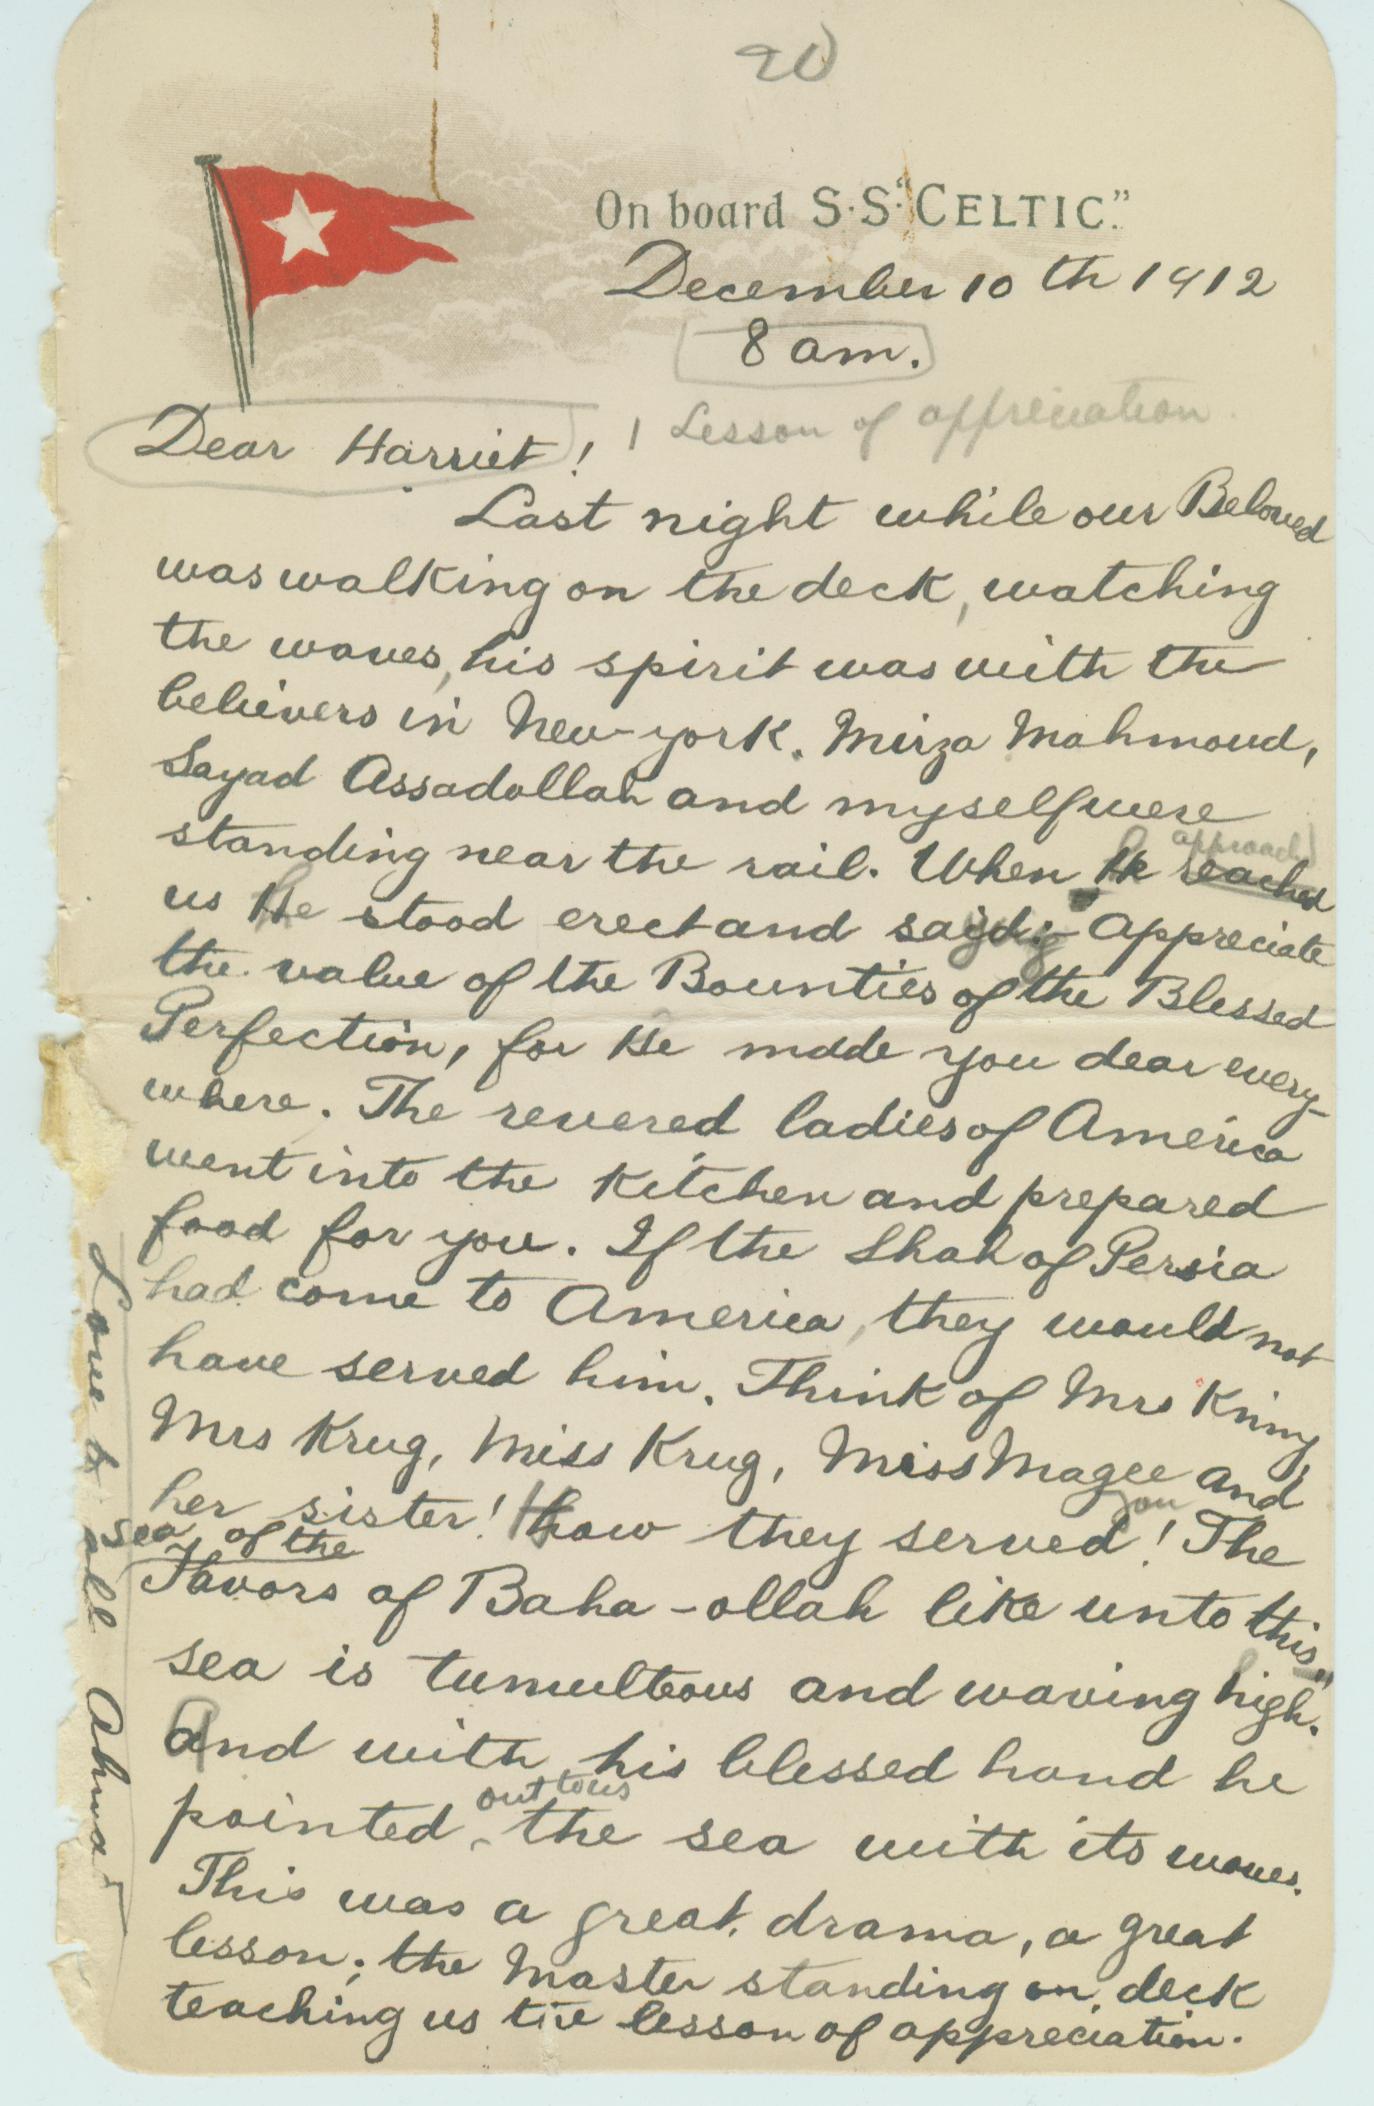 20
On board S.S. "CELTIC."
December 10th 1912
8 am.
Dear Harriet! | Lesson of appreciation
Last night while our Beloved
was walking on the deck, watching
the waves, his spirit was with the
believers in New-york. Mirza Mahmoud,
Sayad Assadollah and myself were
standing near the rail. When He reached approached
us He stood erect and said:- saying Appreciate
the value of the Bounties of the Blessed
Perfection, for He made you dear every-
where. The revered ladies of America
went into the kitchen and prepared
food for you. If the Shah of Persia
had come to America, they would not
have served him. Think of Mrs Kinny
Mrs Krug, Miss Krug, Miss Magee and
her sister! How they served you! The
Sea of the
Favors of Baha-ollah like unto this
sea is tumulteous and waving high."
And with his blessed hand he
pointed out to us the sea with its waves.
This was a great drama, a great
lesson; the Master standing on deck
teaching us the lesson of appreciation.
Love to all Ahmad